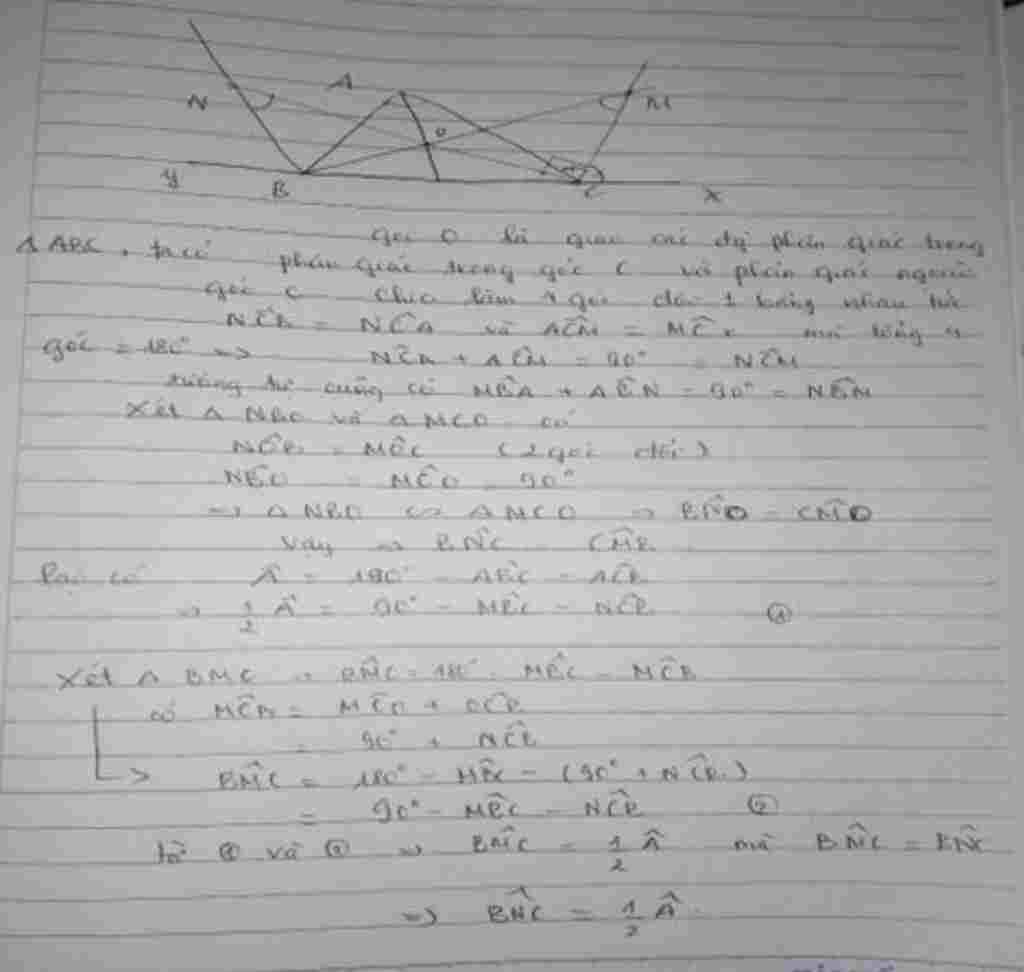 N A O M
y B C x
Δ ABC, ta có gọi O là giao các đg phân giác trong
phân giác trong góc C và phân giác ngoài
góc C chia làm 4 góc đôi 1 bằng nhau tức
NĈB = NĈA và AĈM = MĈx mà tổng 4
góc = 180° => NĈA + AĈM = 90° = NĈM
tương tự cũng có MB̂A + AB̂N = 90° = NB̂M
Xét Δ NBO và Δ MCO có
NÔB = MÔC (2 góc đđ)
NB̂O = MĈO = 90°
=> Δ NBO ∽ Δ MCO => BN̂O = CM̂O
Vậy => BN̂C = CM̂B
Lại có Â = 180° - AB̂C - AĈB
=> 1/2 Â = 90° - MB̂C - NĈB ①
Xét Δ BMC => BM̂C = 180° - MB̂C - MĈB
có MĈB = MĈO + OĈB
= 90° + NĈB
BM̂C = 180° - MB̂C - (90° + NĈB)
= 90° - MB̂C - NĈB ②
từ ① và ② => BM̂C = 1/2 Â mà BM̂C = BN̂C
=> BN̂C = 1/2 Â